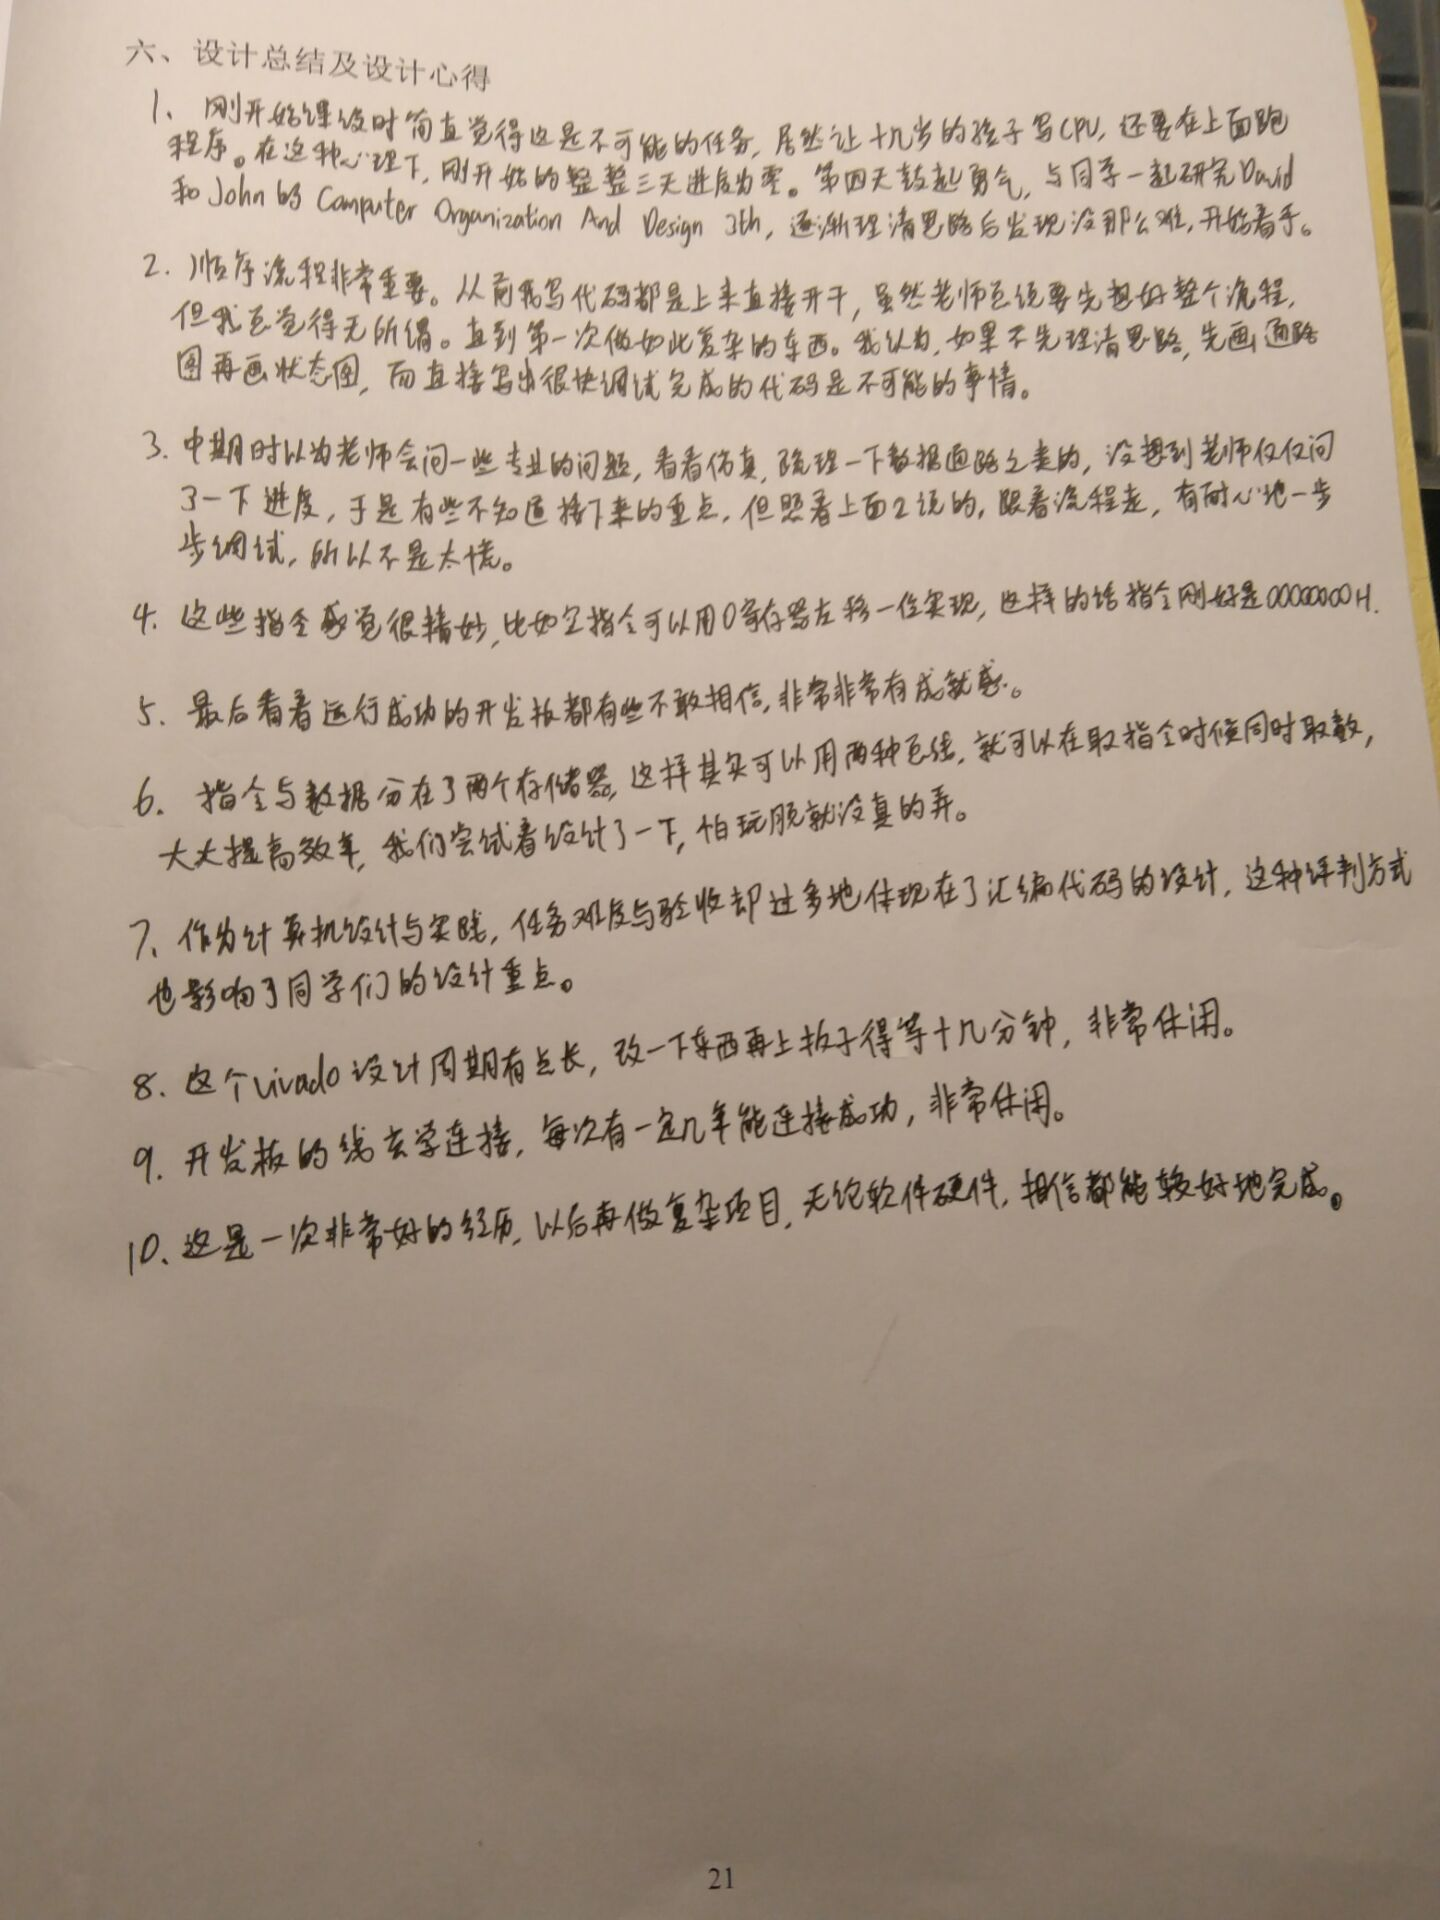 六、设计总结及设计心得
1、刚开始课设时简直觉得这是不可能的任务，居然让十几岁的孩子写CPU，还要在上面跑
程序。在这种心理下，刚开始的整整三天进度为零。第四天鼓起勇气，与同学一起研究David
和John的 Computer Organization And Design 3th，逐渐理清思路后发现没那么难，开始着手。
2. 顺序流程非常重要。从前我写代码都是上来直接开干，虽然老师总说要先想好整个流程，
但我总觉得无所谓。直到第一次做如此复杂的东西。我认为，如果不先理清思路，先画通路
图再画状态图，而直接写出很快调试完成的代码是不可能的事情。
3. 中期时以为老师会问一些专业的问题，看看仿真，梳理一下数据通路之类的，没想到老师仅仅问
了一下进度，于是有些不知道接下来的重点，但照着上面2说的，跟着流程走，有耐心地一步
步调试，所以不是太慌。
4. 这些指令感觉很精妙，比如空指令可以用0寄存器左移一位实现，这样的话指令刚好是00000000H.
5. 最后看着运行成功的开发板都有些不敢相信，非常非常有成就感。
6. 指令与数据分在了两个存储器，这样其实可以用两种总线，就可以在取指令时候同时取数，
大大提高效率，我们尝试着设计了一下，怕玩脱就没真的弄。
7、作为计算机设计与实践，任务难度与验收却过多地体现在了汇编代码的设计，这种评判方式
也影响了同学们的设计重点。
8. 这个vivado设计周期有点长，改一下东西再上板子得等十几分钟，非常休闲。
9. 开发板的线玄学连接，每次有一定几率能连接成功，非常休闲。
10、这是一次非常好的经历，以后再做复杂项目，无论软件硬件，相信都能较好地完成。
21